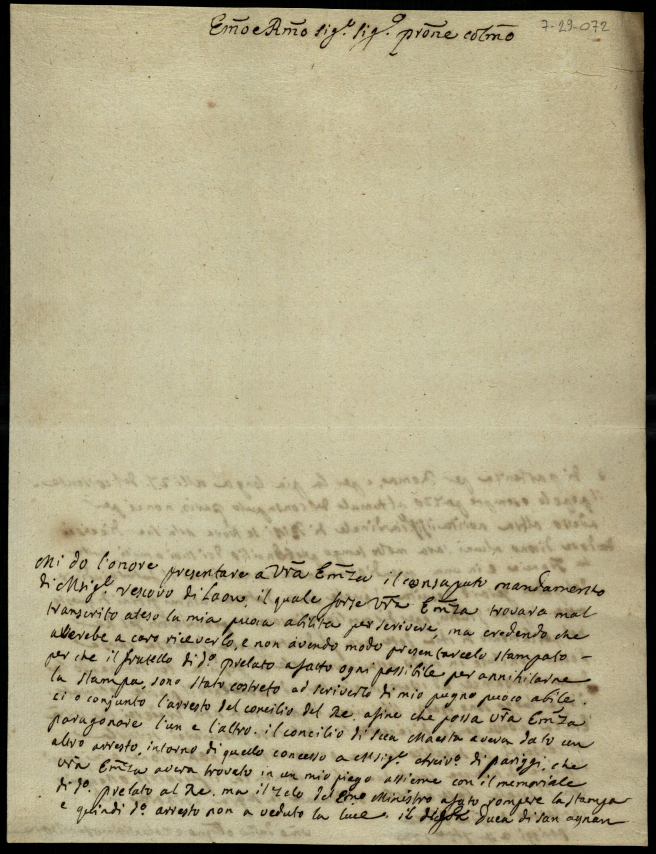 Em̃o e Rm̃o Sig.r Sig.e prõne colm̃o
7-29-072
Mi do l'onore presentare a Vr̃a Em̃za il consaputo mandamento
di Msig.r vescovo di Laon, il quale forse Vr̃a Em̃za trovara mal
transcrito ateso la mia puoca abilita per scrivere, ma credendo che
averebe a caro riceverlo, e non avendo modo presentarcelo stampato -
per che il fratello di d.o prelato a fatto ogni possibile per annihilarne
la stampa, sono stato costreto ad scriverlo di mio pugno puoco abile.
ci o conjunto l'arresto del concilio del Re, afine che possa Vr̃a Em̃za
paragonare l'un e l'altro. il concilio di sua Maesta aveva dato un
altro arresto, intorno di quello concesso a Msig.r Arcivo. di pariggi, che
Vr̃a Em̃za avera trovato in un mio piego assieme con il memoriale
di d.o prelato al Re. ma il zelo del Em̃o Ministro a fato rompere la stampa
e quindi d.o arresto non a veduto la luce. il duca di san agnan